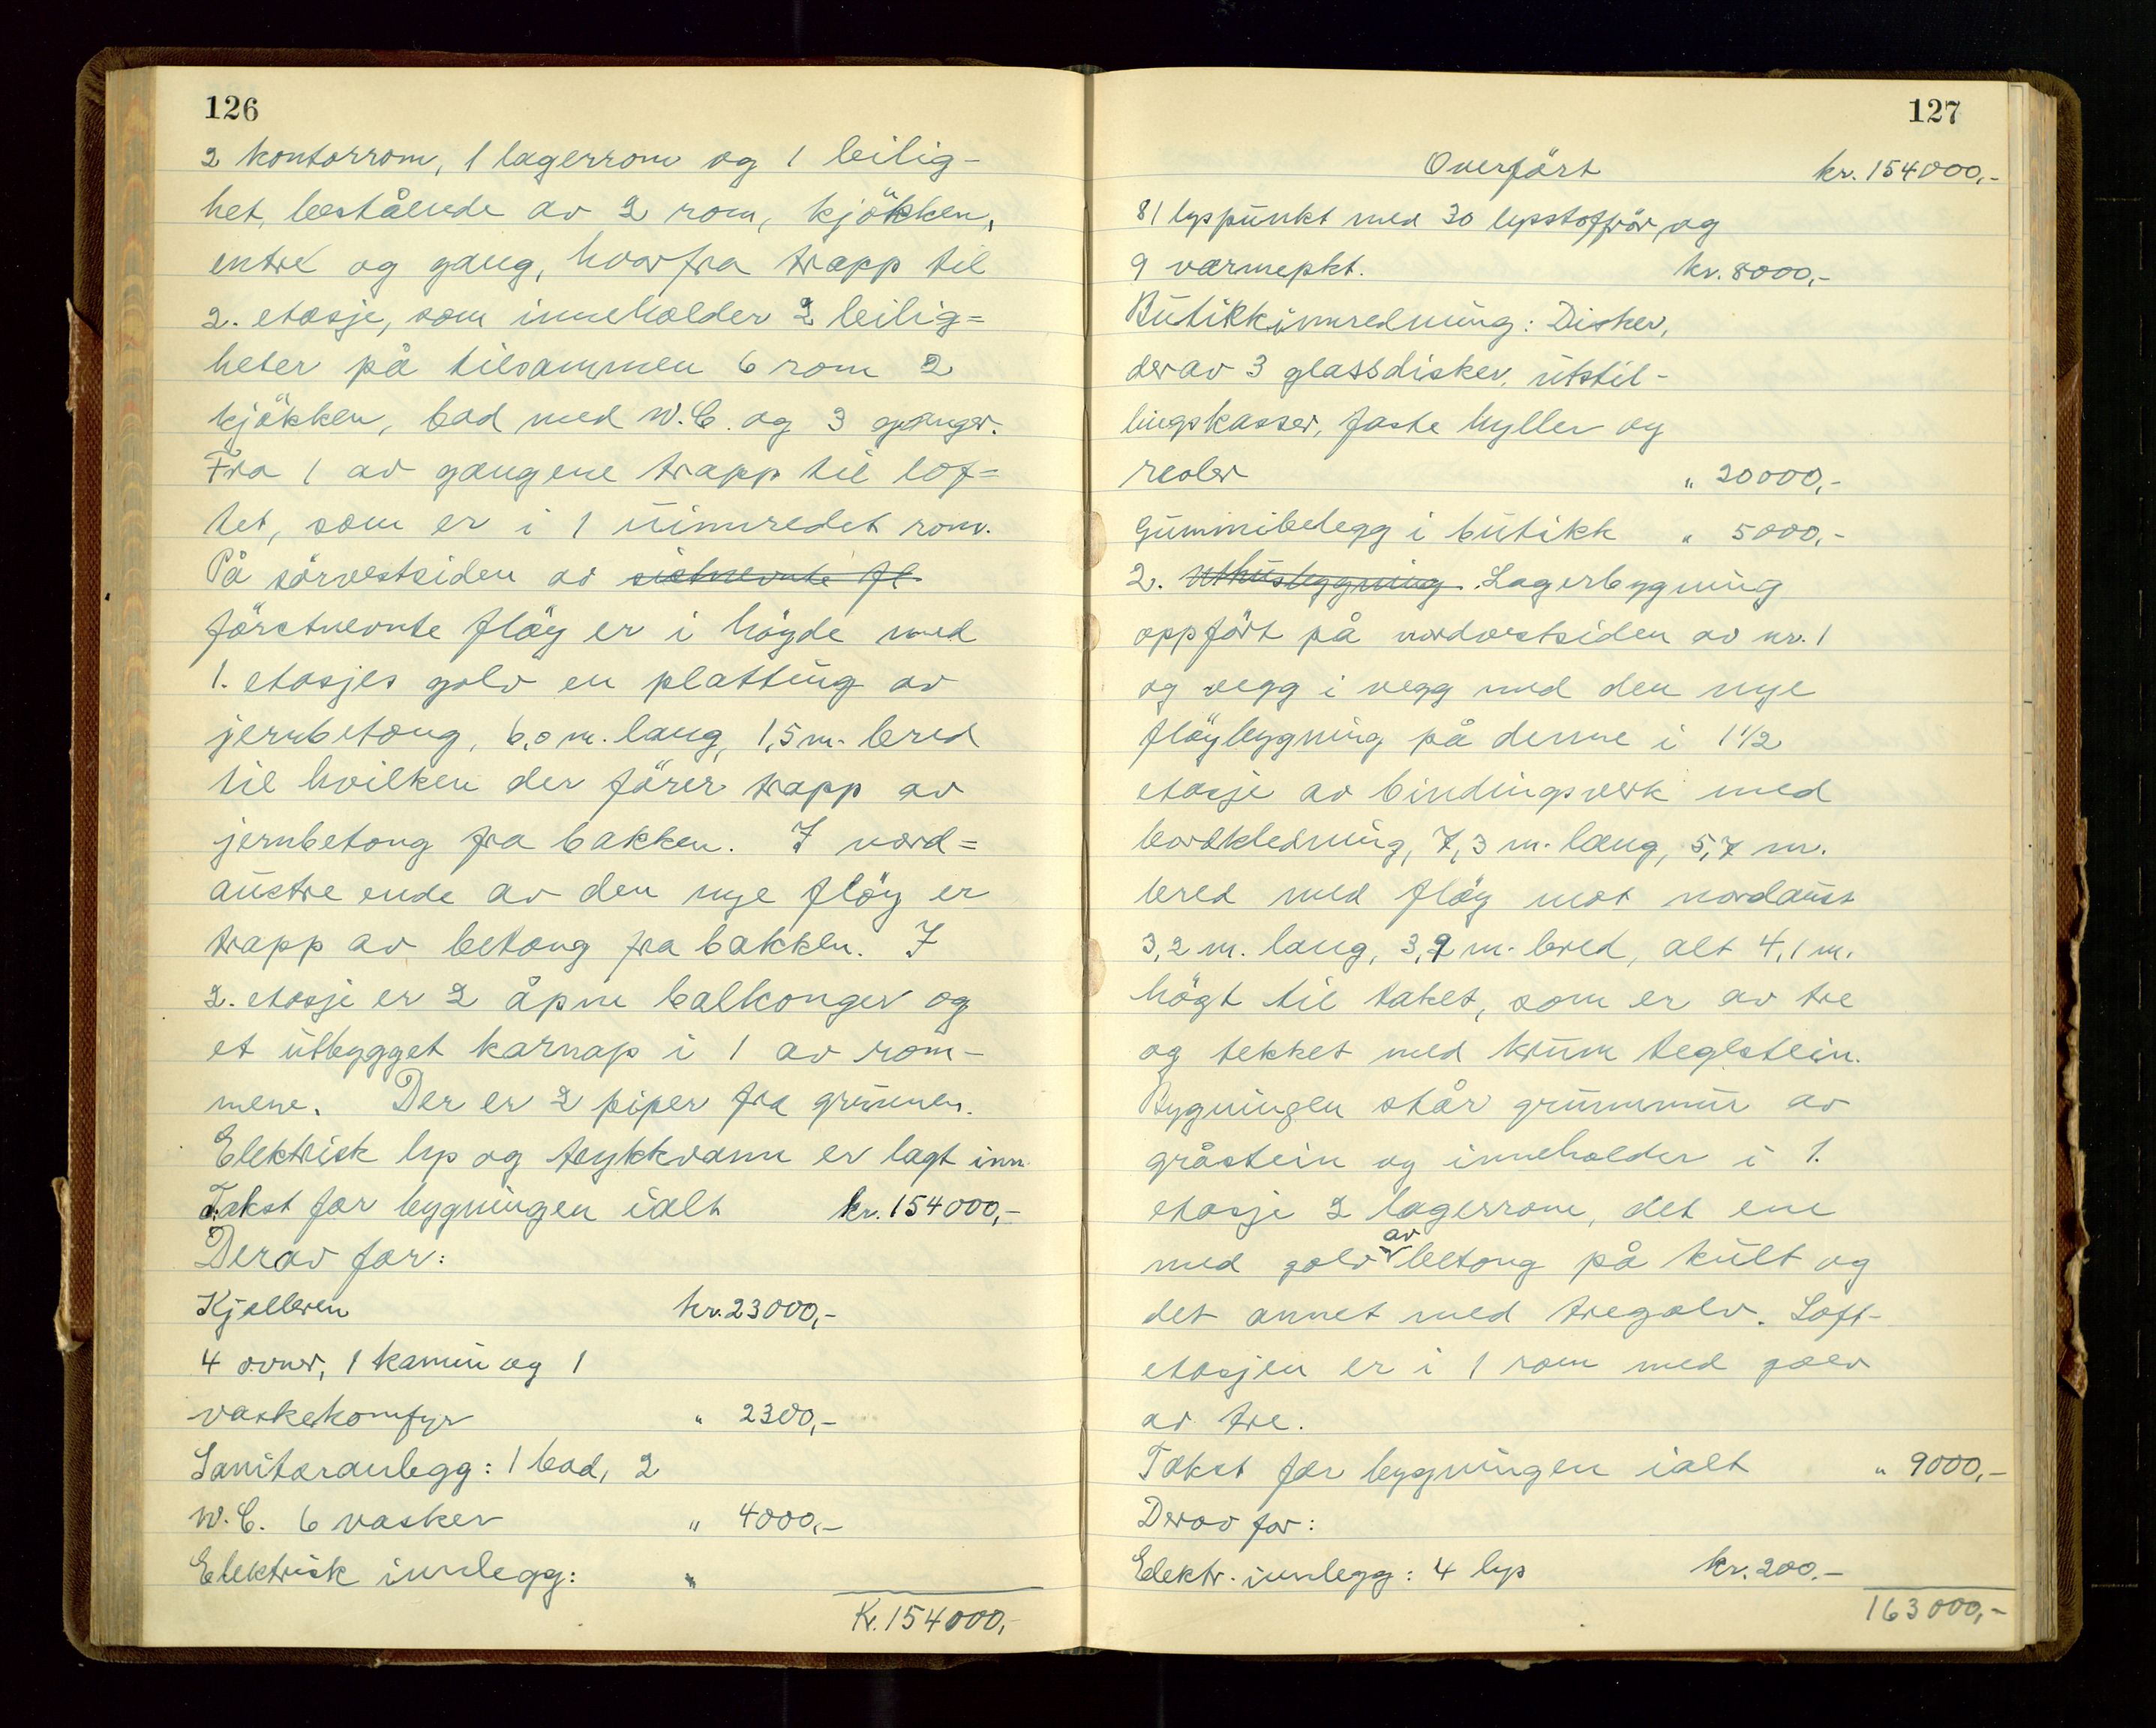 126
2 kontorrom, 1 lagerrom og 1 leilig-
het, bestående av 2 rom, kjökken,
entre og gang, hvorfra trapp til
2. etasje, som inneholder 2 leilig=
heter på tilsammen 6 rom 2
kjökken, bad med W.C. og 3 ganger.
Fra 1 av gangene trapp til lof=
tet, som er i 1 uinnredet rom.
På sörvestsiden av sistnevnte fl
förstnevnte flöy er i högde med
1. etasjes golv en platting av
jernbetong, 6,0 m. lang, 1,5 m. bred
til hvilken der förer trapp av
jernbetong fra bakken. I nord=
austre ende av den nye flöy er
trapp av betong fra bakken. I
2. etasje er 2 åpne balkonger og
et utbygget karnap i 1 av rom-
mene. Der er 2 piper fra grunnen.
Elektrisk lys og trykkvann er lagt inn.
Takst for bygningen ialt kr. 154000,-
Derav for:
Kjelleren kr. 23000,-
4 ovner, 1 kamin og 1
vaskekomfyr " 2300,-
Sanitæranlegg: 1 bad, 2
W.C. 6 vasker " 4000,-
Elektrisk innlegg: "
Kr. 154000,-
127
Overfört kr. 154000,-
81 lyspunkt med 30 lysstoffrör, og
9 varmepkt. kr. 8000,-
Butikkinnredning: Disker,
derav 3 glassdisker, utstil-
lingskasser, faste hyller og
reoler " 20000,-
Gummibelegg i butikk " 5000,-
2. Uthusbygning Lagerbygning
oppfört på nordvestsiden av nr. 1
og vegg i vegg med den nye
flöybygning på denne i 1 1/2
etasje av bindingsverk med
bordkledning, 7,3 m. lang, 5,7 m.
bred med flöy mot nordaust
3,2 m. lang, 3,9 m. bred, alt 4,1 m.
högt til taket, som er av tre
og tekket med krum teglstein.
Bygningen står grunnmur av
gråstein og inneholder i 1.
etasje 2 lagerrom, det ene
med golv av betong på kult og
det annet med tregolv. Loft-
etasjen er i 1 rom med golv
av tre.
Takst for bygningen ialt " 9000,-
Derav for:
Elektr. innlegg: 4 lys kr. 200.-
163000,-